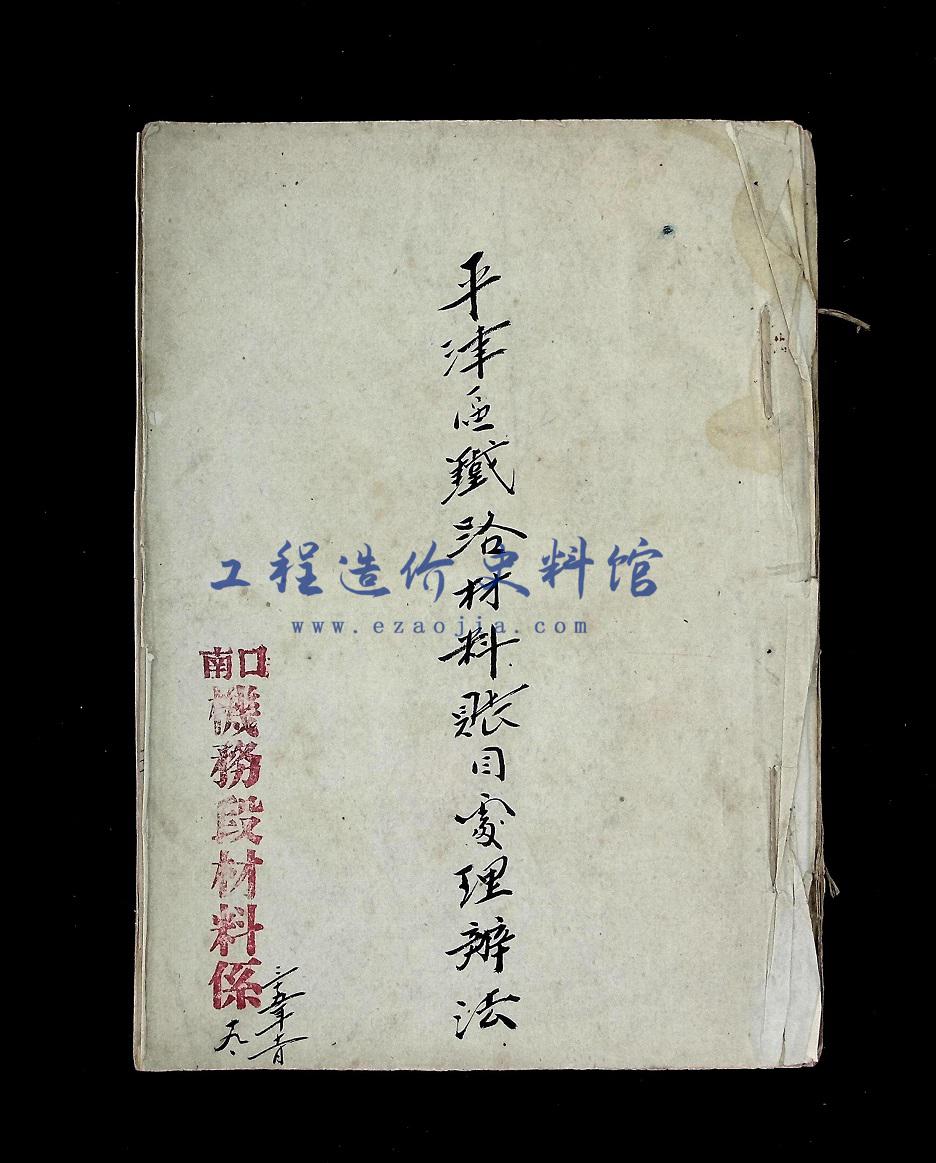 平津區鐵路材料賬目處理辦法
工程造价史料馆
www.ezaojia.com
南口
機務段材料係
三五年